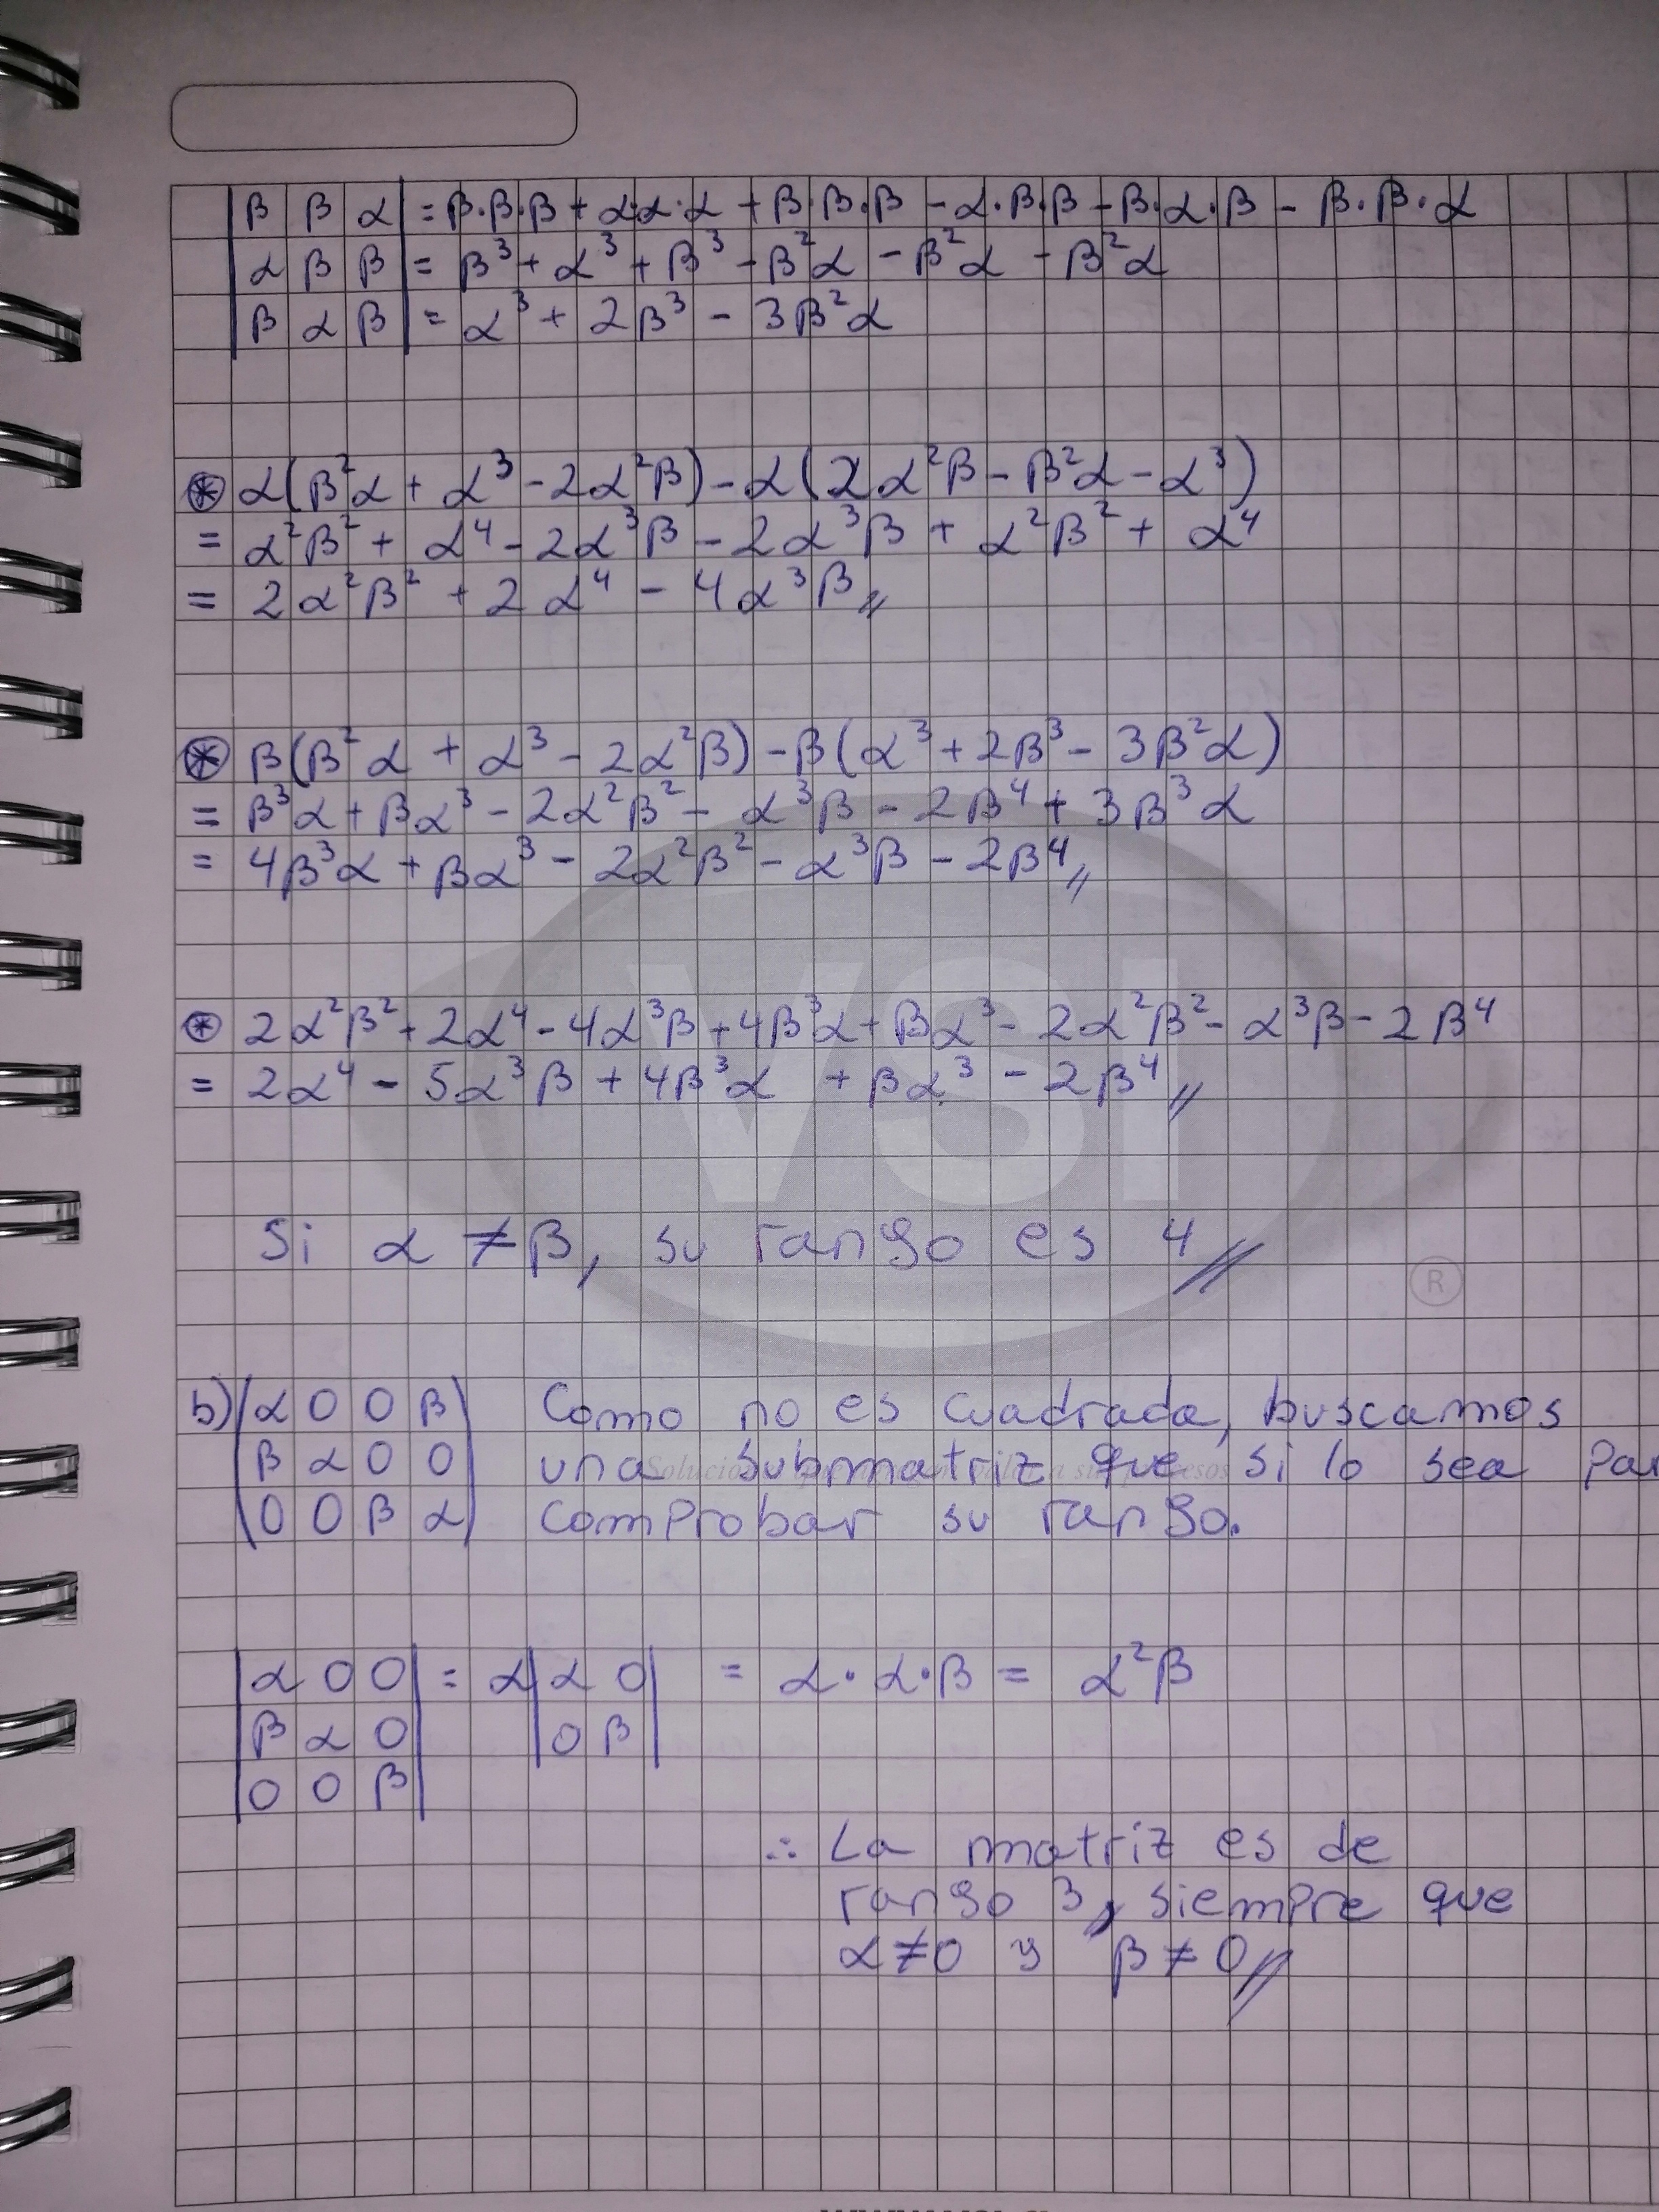 |β β α| = β·β·β + α·α·α + β·β·β - α·β·β - β·α·β - β·β·α
|α β β| = β³ + α³ + β³ - β²α - β²α - β²α
|β α β| = α³ + 2β³ - 3β²α
⊛ α(β²α + α³ - 2α²β) - α(2α²β - β²α - α³)
= α²β² + α⁴ - 2α³β - 2α³β + α²β² + α⁴
= 2α²β² + 2α⁴ - 4α³β//
⊛ β(β²α + α³ - 2α²β) - β(α³ + 2β³ - 3β²α)
= β³α + βα³ - 2α²β² - α³β - 2β⁴ + 3β³α
= 4β³α + βα³ - 2α²β² - α³β - 2β⁴//
⊛ 2α²β² + 2α⁴ - 4α³β + 4β³α + βα³ - 2α²β² - α³β - 2β⁴
= 2α⁴ - 5α³β + 4β³α + βα³ - 2β⁴//
VSI
Si α ≠ β, su rango es 4//
®
b) (α 0 0 β) Como no es cuadrada, buscamos
(β α 0 0) una submatriz que si lo sea par
(0 0 β α) comprobar su rango.
|α 0 0| = α|α 0| = α·α·β = α²β
|β α 0| |0 β|
|0 0 β|
∴ La matriz es de
rango 3, siempre que
α≠0 y β≠0//